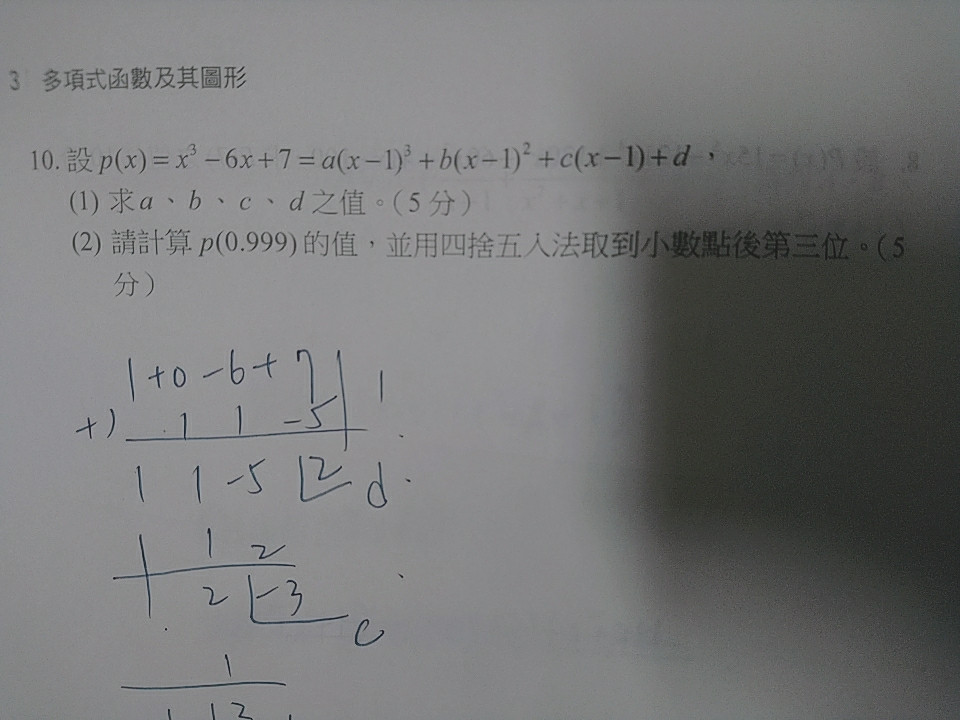 3 多項式函數及其圖形
10. 設 p(x) = x³ − 6x + 7 = a(x−1)³ + b(x−1)² + c(x−1) + d ，
(1) 求 a 、 b 、 c 、 d 之值。(5 分)
(2) 請計算 p(0.999) 的值，並用四捨五入法取到小數點後第三位。(5
分)
1+0-6+7 1
+) 1 1 -5
1 1 -5 2 d
1 2
2 -3
c
1
1 3